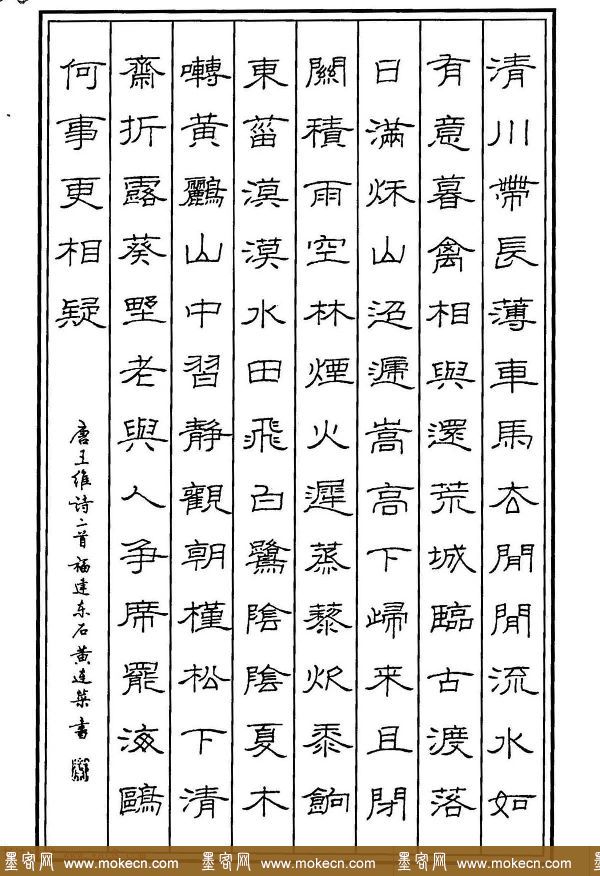 清川帶長薄車馬去閒閒流水如
有意暮禽相與還荒城臨古渡落
日滿秋山迢遞嵩高下歸来且閉
關積雨空林煙火遲蒸藜炊黍餉
東菑漠漠水田飛白鷺陰陰夏木
囀黃鸝山中習靜觀朝槿松下清
齋折露葵野老與人争席罷海鷗
何事更相疑
唐王维诗二首福建东石黄连葉書
墨客网 www.mokecn.com 墨客网 www.mokecn.com 墨客网 www.mokecn.com